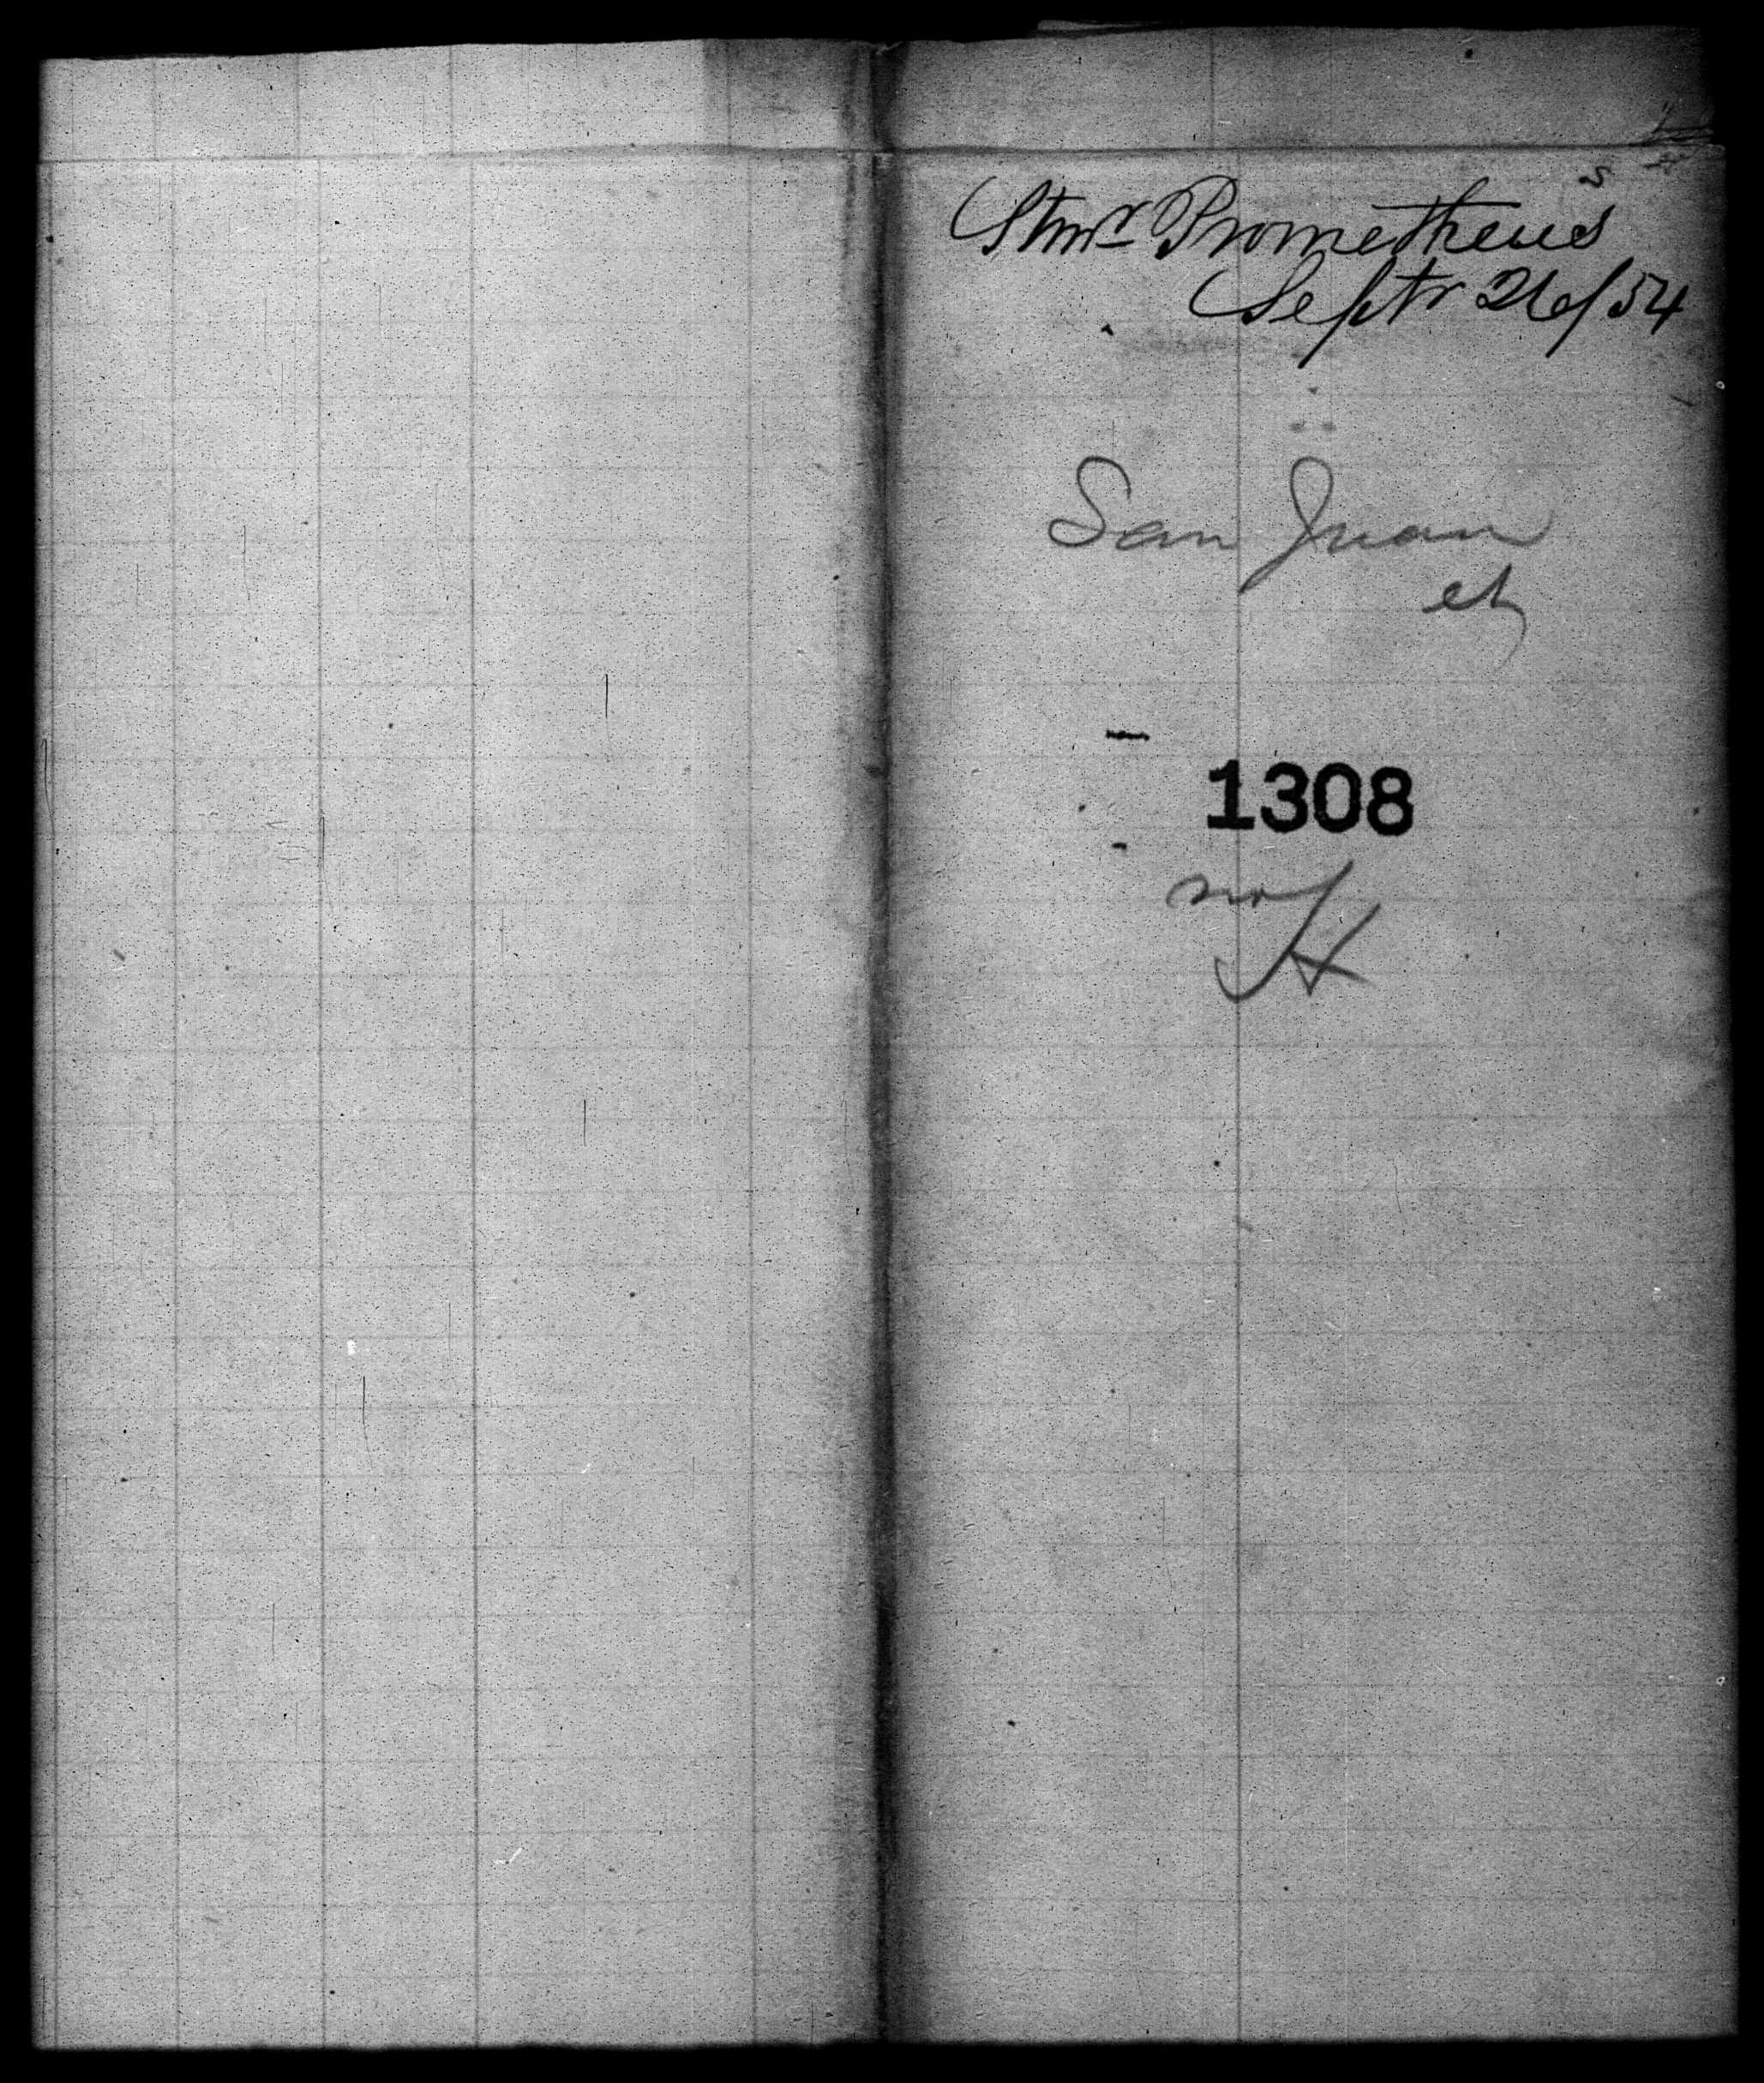 Stmr Prometheus
Septr 26/54
San Juan
1308